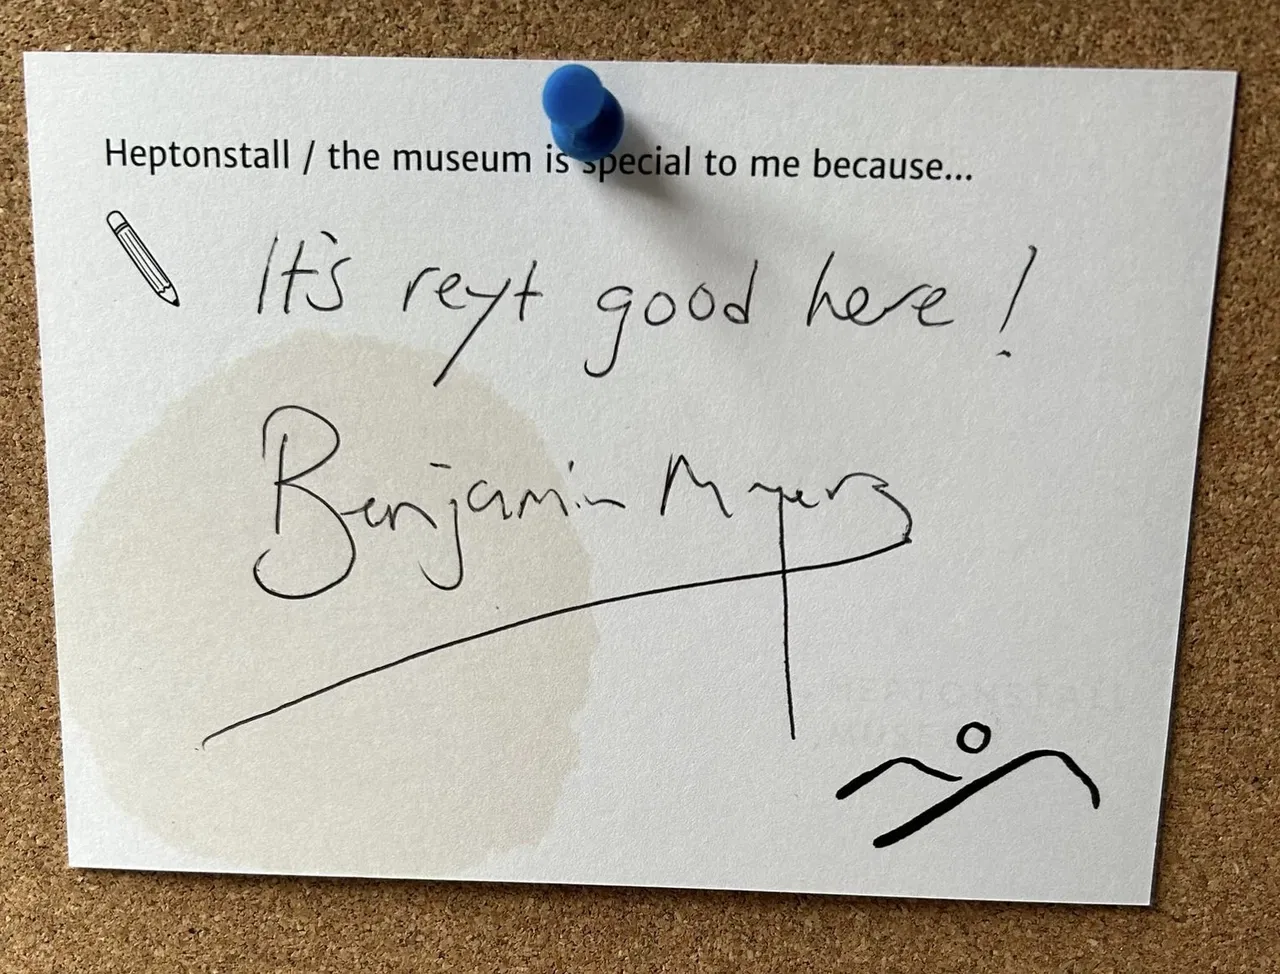 Heptonstall / the museum is special to me because...
It's reyt good here!
Benjamin Myers
HEPTONSTALL
MUSEUM